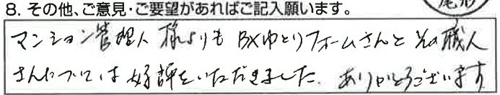 8. その他、ご意見・ご要望があればご記入願います。
マンション管理人様よりも BXゆとりフォームさんとその職人
さんについては好評をいただきました。ありがとうございます